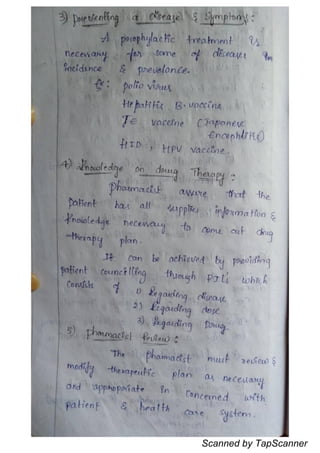 3) preventing a disease & Symptoms:
A prophylactic treatment is
necessary for some of diseases
incidence & prevalence.
Ex: polio virus
Hepatitis B. vaccine
JE vaccine (Japanese
Encephlitis)
HPV vaccine.
4) Knowledge on drug Therapy:
pharmacist assure that the
patient has all supplies, information &
knowledge necessary to come out drug
therapy plan.
It can be achieved by providing
patient councilling through which
consists of 1) Regarding disease
2) Regarding dose
3) Regarding Drug.
5) pharmacist Review:
The pharmacist must review &
modify therapeutic plan as necessary
and appropriate in concerned with
patient & health care system.
Scanned by TapScanner